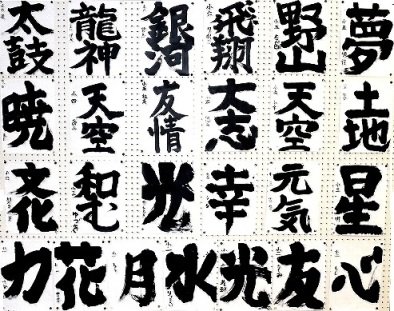 太鼓 龍神 銀河 飛翔 野山 夢
暁 天空 友情 大志 天空 土地
文化 和む 光 幸 元気 星
力 花 月 水 光 友 心